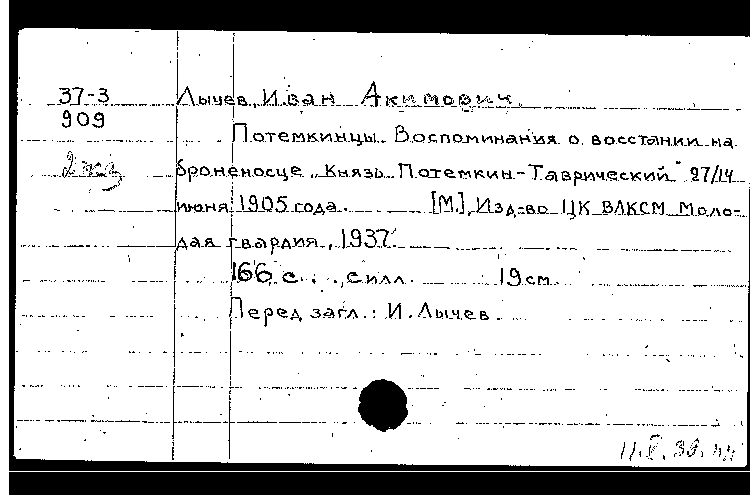 37-3 Лычев, Иван Акимович.
909
Потемкинцы. Воспоминания о восстании на
2 экз броненосце „Князь Потемкин-Таврический" 27/14
июня 1905 года. [М.], Изд-во ЦК ВЛКСМ Моло-
дая гвардия, 1937.
166 с. , с илл. 19 см.
Перед загл.: И. Лычев.